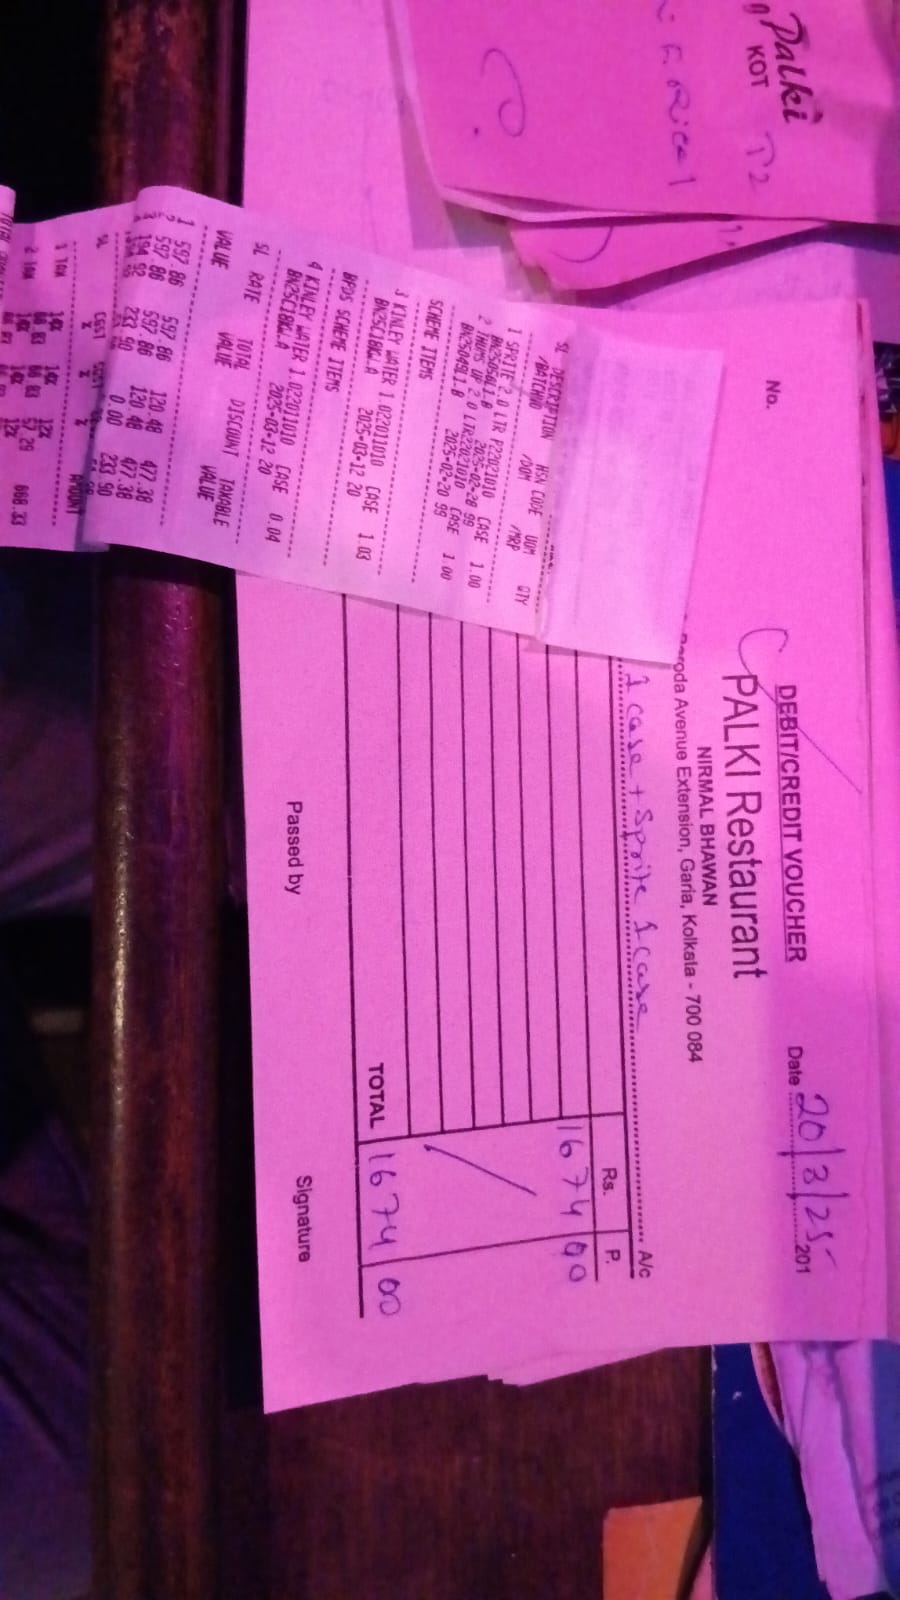 Palki
KOT T2
F. Rice 1
DEBIT/CREDIT VOUCHER
No.
Date 20/3/25 201
PALKI Restaurant
NIRMAL BHAWAN
Baroda Avenue Extension, Garia, Kolkata - 700 084
1 case + Sprite 1 case A/c
Rs. P.
1674 00
TOTAL 1674 00
Passed by
Signature
SL DESCRIPTION HSN CODE UOM QTY
/BATCHNO /DOM /MRP
1 SPRITE 2.0 LTR P22021010 CASE 1.00
2025-02-28 99
2 THUMS UP 2.0 LTR22021010 CASE 1.00
2025-02-20 99
SCHEME ITEMS
3 KINLEY WATER 1.022011010 CASE 1.03
2025-03-12 20
BPDS SCHEME ITEMS
4 KINLEY WATER 1.022011010 CASE 0.04
2025-03-12 20
SL RATE TOTAL DISCOUNT TAXABLE
VALUE VALUE VALUE
1 597.86 597.86 120.48 477.38
597.86 597.86 120.48 477.38
194.92 233.90 0.00 233.90
SL CGST AMOUNT
% % %
1 TAX 14% 14% 12%
66.83 66.83 57.29 668.33
2 TAX 14% 14% 12%